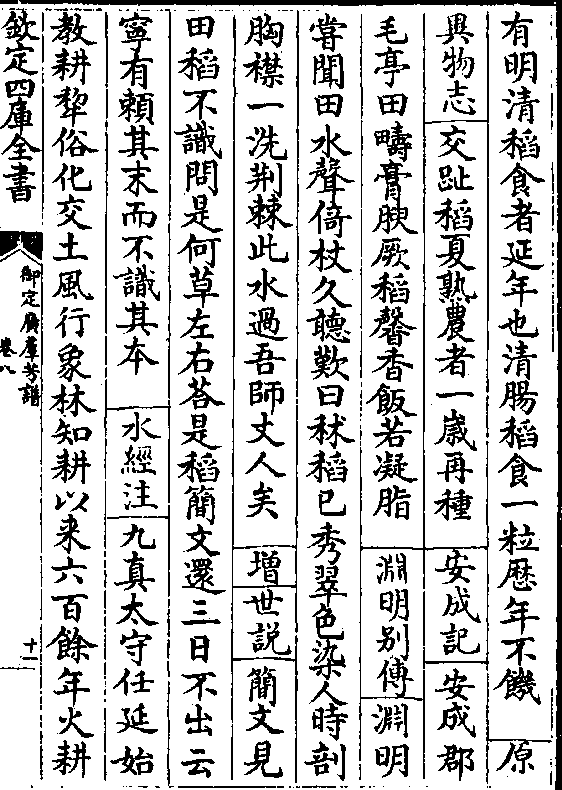 有明清稻食者延年也清腸稻食一粒歴年不饑　原
異物志　交趾稻夏熟農者一歲再種　安成記　安成郡
毛亭田疇膏腴厥稻馨香飯若凝脂　淵明別傳　淵明
嘗聞田水聲倚杖久聽歎曰秫稻已秀翠色染人時剖
胸襟一洗荆棘此水過吾師丈人矣　增世說　簡文見
田稻不識問是何草左右荅是稻簡文還三日不出云
寧有頼其末而不識其本　水經注　九真太守任延始
教耕犂俗化交土風行象林知耕以来六百餘年火耕
欽定四庫全書
御定廣羣芳譜
卷八
十一